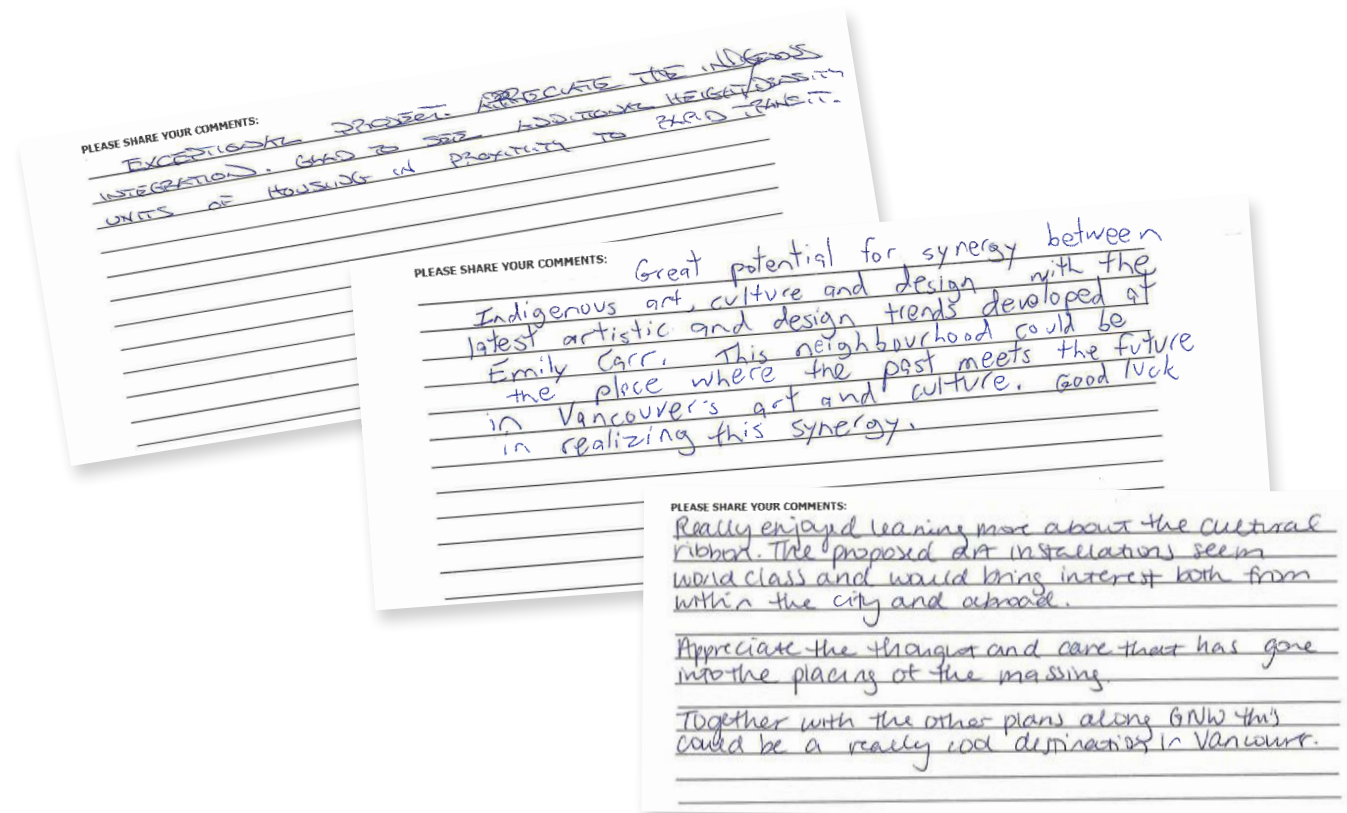 PLEASE SHARE YOUR COMMENTS:
EXCEPTIONAL PROJECT. APPRECIATE THE INDIGENOUS
INTEGRATION. GLAD TO SEE ADDITIONAL HEIGHT/DENSITY
UNITS OF HOUSING IN PROXIMITY TO RAPID TRANSIT.
PLEASE SHARE YOUR COMMENTS:
Great potential for synergy between
Indigenous art, culture and design with the
latest artistic and design trends developed at
Emily Carr. This neighbourhood could be
the place where the past meets the future
in Vancouver's art and culture. Good luck
in realizing this synergy.
PLEASE SHARE YOUR COMMENTS:
Really enjoyed leaning more about the cultural
ribbon. The proposed art installations seem
world class and would bring interest both from
within the city and abroad.
Appreciate the thought and care that has gone
into the placing of the massing.
Together with the other plans along GNW this
could be a really cool destination in Vancouver.